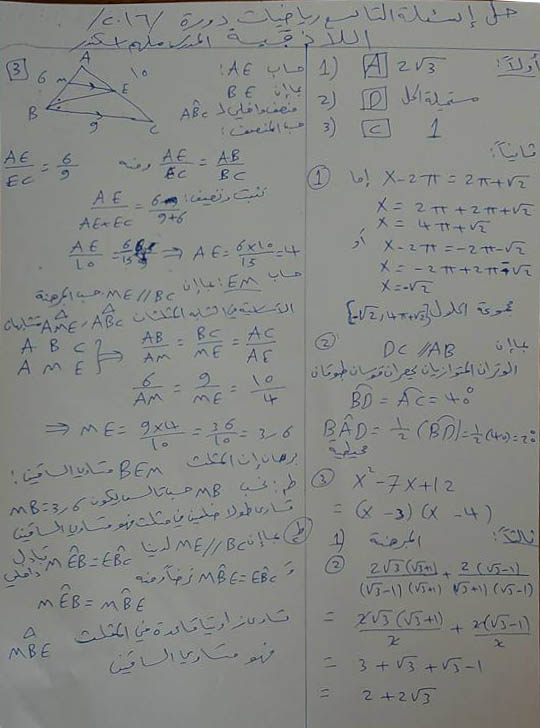 حل أسئلة التاسع رياضيات دورة /٢٠١٦/
اللاذقية المدرس ملهم
أولاً: 1) A 2√3
2) D مستحيلة الحل
3) C 1
ثانياً:
① إما x - 2π = 2π + √2
x = 2π + 2π + √2
x = 4π + √2
أو x - 2π = -2π - √2
x = -2π + 2π - √2
x = -√2
مجموعة الحلول {-√2, 4π+√2}
② بما إن DC // AB
الوتران المتوازيان يحصران قوسان طبوقان
BD = AC = 40°
BAD = 1/2 (BD) = 1/2 (40) = 20°
محيطية
③ x² - 7x + 12
= (x - 3)(x - 4)
ثالثاً: 1) المبرهنة
② 2√3(√3+1) / (√3-1)(√3+1) + 2(√3-1) / (√3+1)(√3-1)
= 2√3(√3+1) / 2 + 2(√3-1) / 2
= 3 + √3 + √3 - 1
= 2 + 2√3
3 A 10 حساب AE:
6 m E بما إن BE
B 9 C منصف داخلي لـ ABC
حسب المنصف:
AE/EC = 6/9 ومنه AE/EC = AB/BC
نثبت ونضيف: AE/(AE+EC) = 6/(9+6)
AE/10 = 6/15 ⇒ AE = 6×10/15 = 4
حساب EM: بما إن ME // BC حسب المبرهنة
الأساسية في التشابه المثلثان AME, ABC متشابهان
A B C
A M E } ⇒ AB/AM = BC/ME = AC/AE
6/AM = 9/ME = 10/4
⇒ ME = 9×4/10 = 36/10 = 3,6
برهان إن المثلث BEM متساوي الساقين:
ط١: نحسب MB حسب تالس ليكون MB = 3,6
تساوى طولا ضلعين في مثلث فهو متساوي الساقين
ط٢ بما إن ME // BC لدينا MEB = EBC تبادل داخلي
و MBE = EBC فرضاً ومنه
MEB = MBE
تساوي زاويتا قاعدة في المثلث
MBE
فهو متساوي الساقين